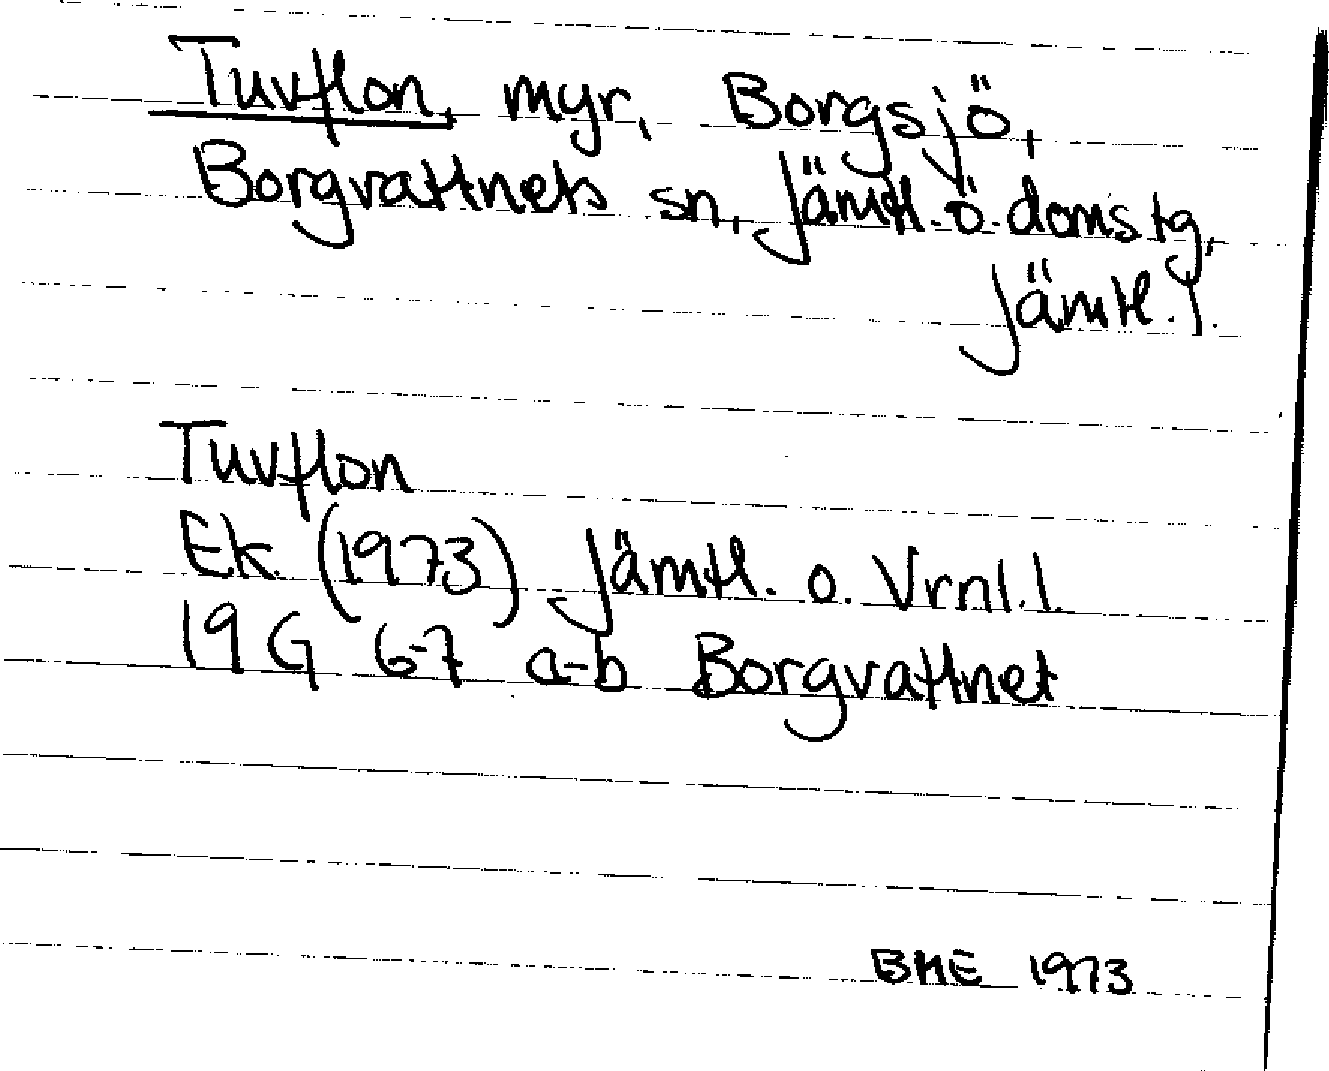 Tuvflon, myr, Borgsjö,
Borgvattnets sn, Jämtl. ö. domstg,
Jämtl. l.
Tuvflon
Ek. (1973) Jämtl. o. Vrnl. l.
19 G 6-7 a-b Borgvattnet
BME 1973